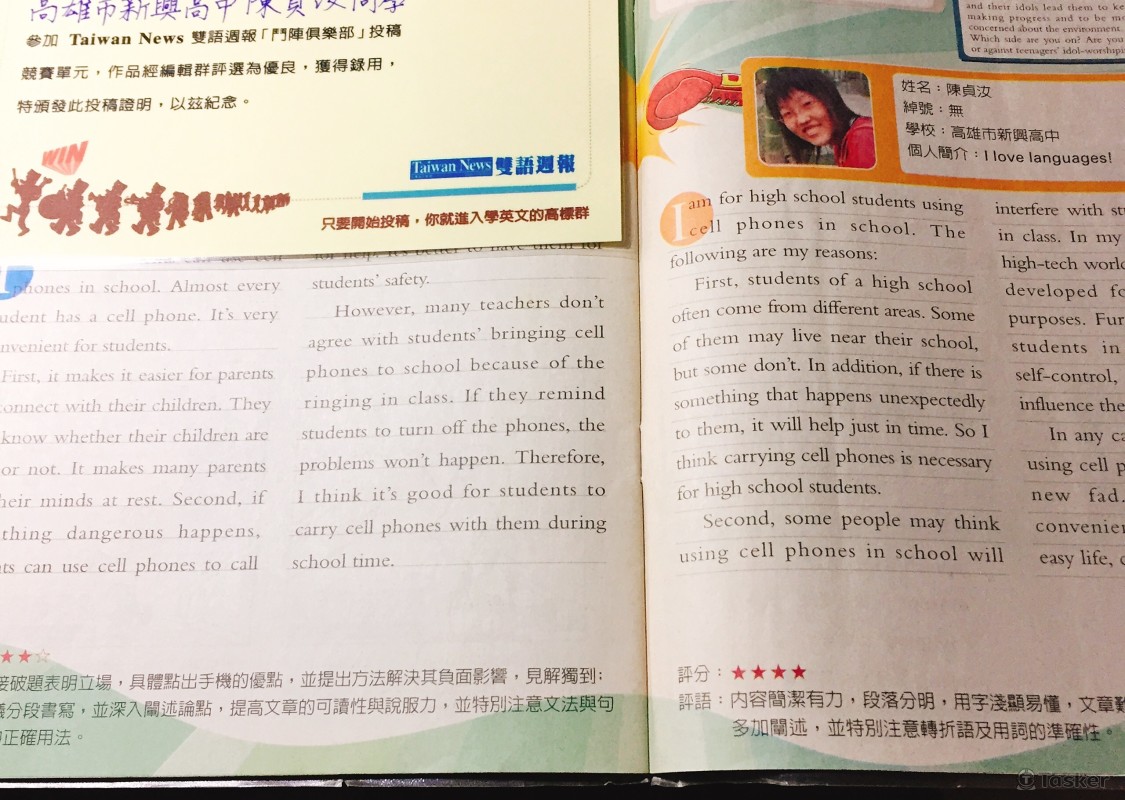 高雄市新興高中陳貞汝同學
參加 Taiwan News 雙語週報「鬥陣俱樂部」投稿
競賽單元，作品經編輯群評選為優良，獲得錄用，
特頒發此投稿證明，以茲紀念。
WIN
Taiwan News 雙語週報
只要開始投稿，你就進入學英文的高標群
phones in school. Almost every
has a cell phone. It's very
for students.
First, it makes it easier for parents
with their children. They
know whether their children are
or not. It makes many parents
their minds at rest. Second, if
thing dangerous happens,
can use cell phones to call
for help. It's better to have them for
students' safety.
However, many teachers don't
agree with students' bringing cell
phones to school because of the
ringing in class. If they remind
students to turn off the phones, the
problems won't happen. Therefore,
I think it's good for students to
carry cell phones with them during
school time.
★★☆
破題表明立場，具體點出手機的優點，並提出方法解決其負面影響，見解獨到；
分段書寫，並深入闡述論點，提高文章的可讀性與說服力，並特別注意文法與句
正確用法。
and their idols lead them to
making progress and to be
concerned about the environment.
Which side are you on? Are you
or against teenagers' idol-worshipi
姓名：陳貞汝
綽號：無
學校：高雄市新興高中
個人簡介：I love languages!
I am for high school students using
cell phones in school. The
following are my reasons:
First, students of a high school
often come from different areas. Some
of them may live near their school,
but some don't. In addition, if there is
something that happens unexpectedly
to them, it will help just in time. So I
think carrying cell phones is necessary
for high school students.
Second, some people may think
using cell phones in school will
interfere with
in class. In my
high-tech
developed
purposes.
students in
self-control,
influence
In any
using cell
new fad.
easy life,
評分：★★★★
評語：內容簡潔有力，段落分明，用字淺顯易懂，文章
多加闡述，並特別注意轉折語及用詞的準確性。
Tasker